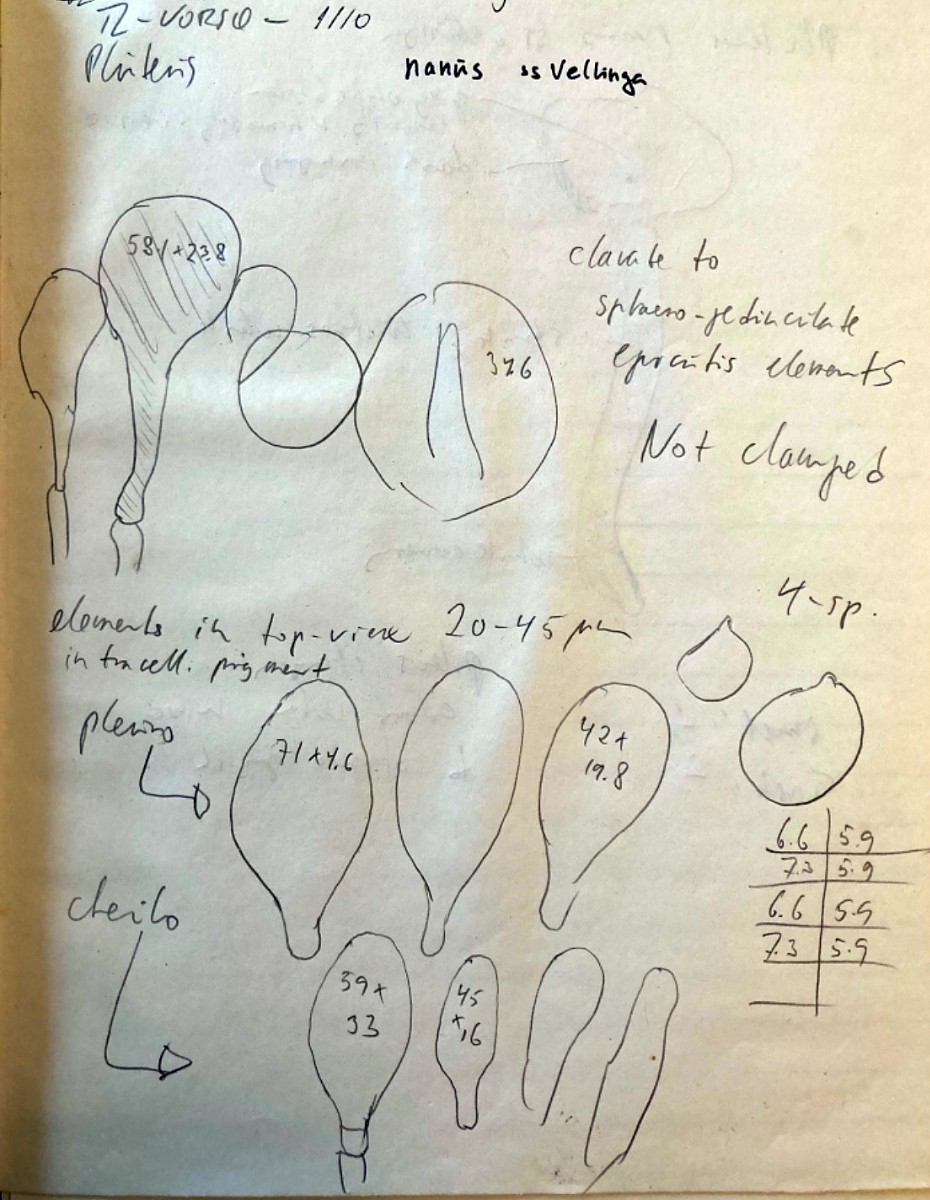 12-VORSQ - 1/10
Pluteus nanus ss Vellinga
58.1+23.8
37.6
clavate to
sphaero-pedinculate
epicutis elements
Not clamped
elements in top-view 20-45 µm
intracell. pigment
4-sp.
pleuro
71+4.6
42+
19.8
6.6 5.9
7.3 5.9
6.6 5.9
7.3 5.9
cheilo
59+
33
45
+16